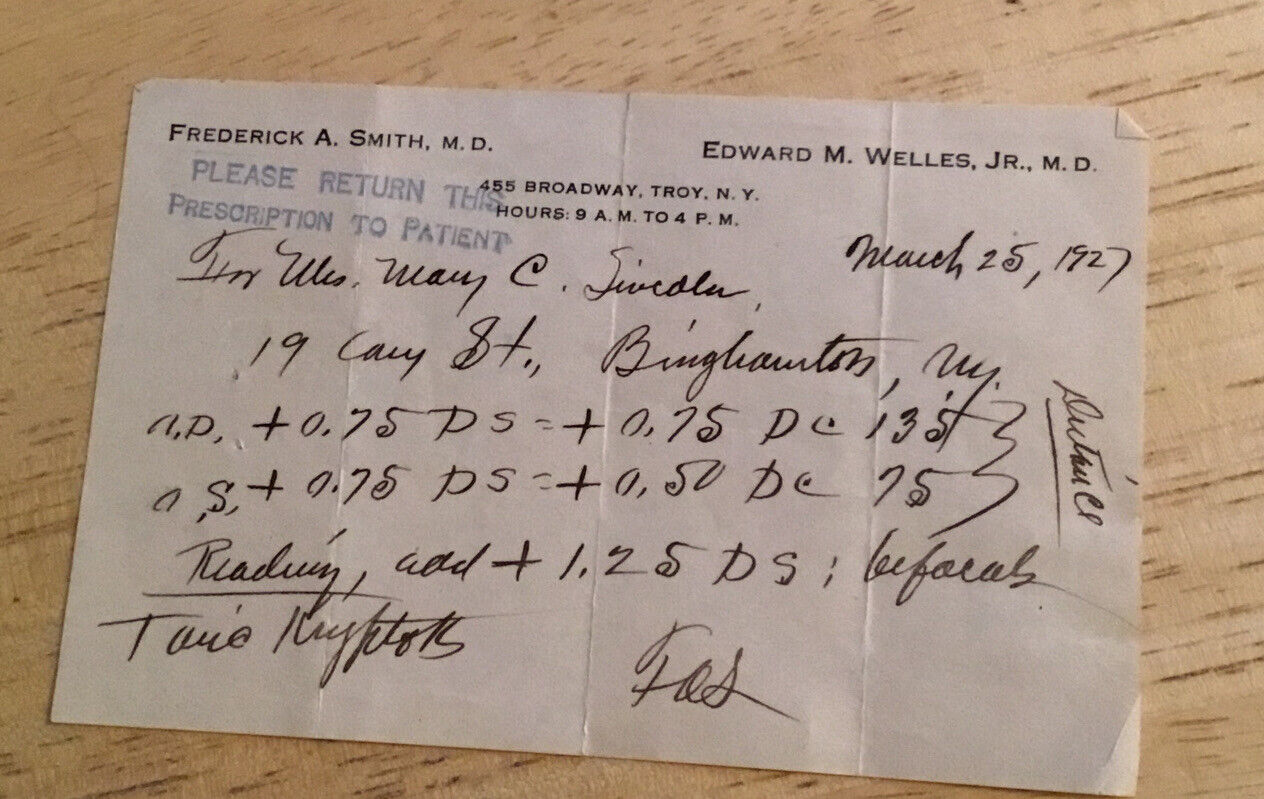 FREDERICK A. SMITH, M. D.
EDWARD M. WELLES, JR., M. D.
PLEASE RETURN THIS
PRESCRIPTION TO PATIENT
455 BROADWAY, TROY, N. Y.
HOURS: 9 A. M. TO 4 P. M.
March 25, 1927
For Mrs. Mary C.
19 Cary St., Binghamton, N.Y.
O.D. + 0.75 DS = + 0.75 DC 135
O.S. + 0.75 DS = + 0.50 DC 75
Distance
Reading, add + 1.25 DS ; bifocals
Toric Kryptoks
FAS